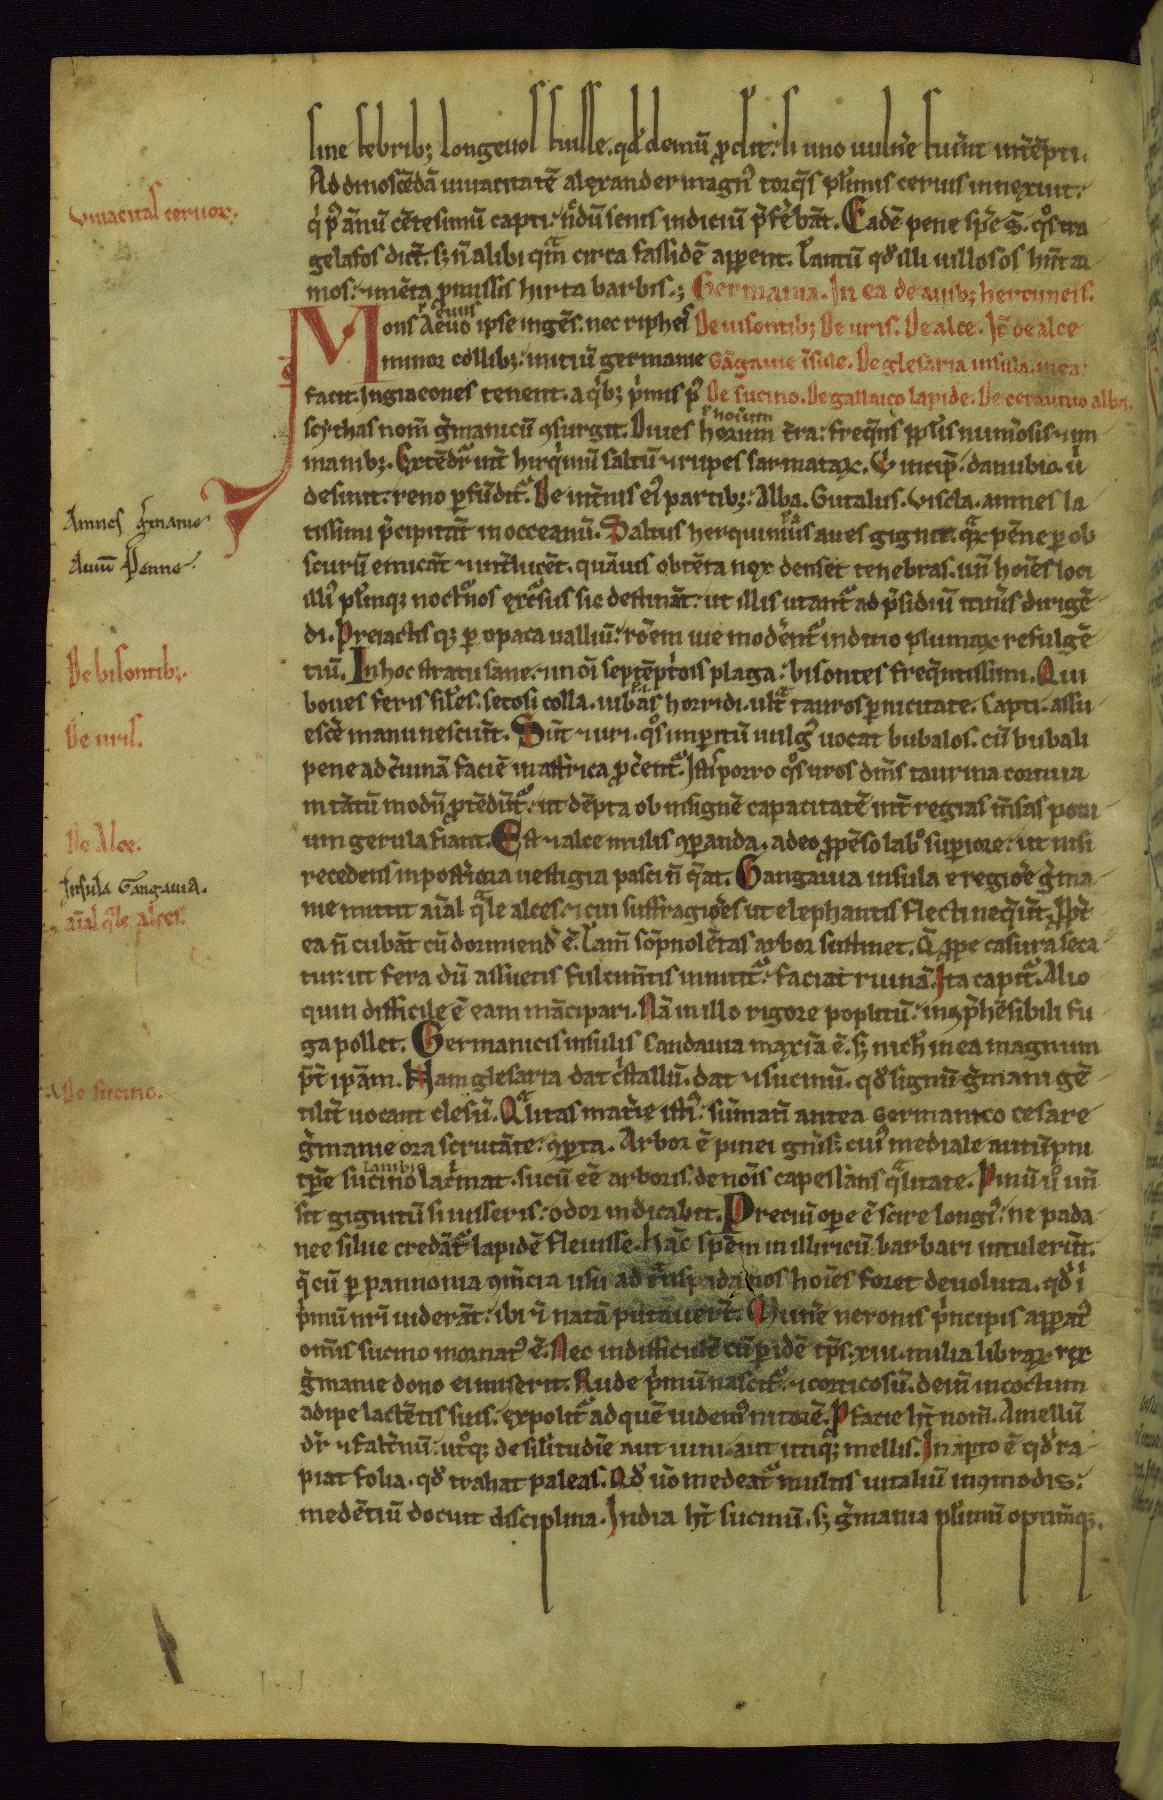 sine febrib; longeuos fuisse. qđ demū ꝓdit: si uno uulnˀe fuerīt inťēpti.
Ad dinoscēdā uiuacitatē alexander magn᷒ torq̄s plˀimis ceruis innexuit:
Uiuacitas ceruoꝝ.
q̍ p᷒ ānū cētesimū capti: n̄dū senis indiciū p̄fe᷒bāt. Eadē pene sp̄e s̄. q̊s tra
gelafos dict̄. sꝫ n̄ alibi q̄m circa fassidē apparent. Tantū qđ illi uillosos hn̄t ar
mos: ⁊ mēta ꝓmissis hirta barbis.; Germania. In ea de auib; hercuneis.
Mons Aeuo ipse ingēs. nec ripheis De uisontib; De uris. De alce. Itē de alce
minor collib;: initiū germanie Gāgauie īsule. De glesaria insula. in ea:
facit. Ingiaeones tenent. a q̍b; p̍mis p᷒ De sucino. De gallaico lapide. De ceraunio albo.
scythas nom̄ g̍manicū ꝯsurgit. Diues horum t̄ra: freq̄ns ppl̄is num̄osis ⁊ im
manib;. Extēdr̄ int̄ hirq̍niū saltū ⁊ rupes sarmataꝝ. U incip̄. danubio. u̍
desinit. reno ꝑfūdit᷑. De int̄nis ei᷒ partib;: Alba. Gutalus. Viscla. amnes la
Amnes g̍manie
tissimi p̄cipitāt in occeanū. Saltus herquinius aues gignit. q̄ꝝ pēne ꝑ ob
Auiū Penne.
scurū emicāt ⁊ int̄lucēt. quāuis obtēta nox denset tenebras. un̄ hoīes loci
illi᷒ plˀinq; noct᷑nos exc᷑sus sic destināt: ut illis utant᷑ ad p̄sidiū itin̄is dirigē
di. Preiactis q; ꝑ opaca uallium: rōem uie modˀent᷑ inditio plumaꝝ refulgē
tiū. In hoc stratu sane: ⁊ in oī septēpt̍ois plaga: bisontes freq̄ntissimi. Qui
De bisontib;.
boues feris sil̄es. setosi colla. iubas horridi. ult̄ tauros ꝑnicitate. Capti. assu
escˀe manu nescūt. Sūt ⁊ uri. q̊s imꝑitū uulg᷒ uocat bubalos. cū bubali
De uris.
pene ad c̍uinā faciē in affrica ꝓcˀent᷑. Isti porro q̊s uros dm̄s taurina cornua
in tātū modū ꝓtēdūt᷑: ut dēpta ob insignē capacitatē int̄ regias m̄sas potu
um gerula fiant. Est ⁊ alce mulis ꝯparanda. adeo ꝓpēso labo superiore: ut nisi
De Alce.
recedens in post̍iora uestigia pasci n̄ q̄at. Gangauia insula e regiōe g̍ma
Insula Gangauia.
nie mittit aīal q̄le alces. ⁊ cui suffragiōes ut elephantis flecti neq̄ūt. Ppt̄
aīal q̄le alces.
ea n̄ cubāt cū dormiend᷒ ē. Tam̄ sōpnolētas arbor sustinet. Q̄ ꝓpe casura seca
tur: ut fera dū assuetis fulcim̄tis innitit᷑: faciat ruinā. Ita capit᷑. Alio
quin difficile ē eam mācipari. Nā in illo rigore poplitū: inꝯp̄hēsibili fu
ga pollet. Germanicis insulis Candauia maxīa ē. sꝫ nich̄ in ea magnum
p̄t ip̄am. Nam glesaria dat c̍stallū. dat ⁊ sucinū. qđ signū g̍mani gē
De sucino.
tilit̄ uocant clesū. Q̄litas mat̍ie isti᷒: summatī antea Germanico cesare
g̍manie ora scrutāte: ꝯperta. Arbor ē pinei gn̄is: cui᷒ mediale autūpni
tp̄e sucino lac̍mat. sucū eē arboris. de noīs capessans q̄litate. Pinū ů un̄
sit gignitū si usseris: odor indicabit. Preciū ope ē scire longi᷒. ne pada
nee silue credāt᷑ lapidē fleuisse. Hāc spēm in illiricū barbari intulerūt.
q̄ cū ꝑ pannonia ꝯm̄cia usu ad t̄nspadanos hoīes foret deuoluta. qđ i
p̍mū nr̄i uiderāt: ibi ⁊ī natā putauer̄t. Munˀe neronis p̍ncipis apparat᷒
om̄is sucino inornat᷒ ē. Nec indifficultē cū ꝑ idē tp̄s. xiii. milia libraꝝ rex
g̍manie dono ei miserit. Rude p̍mū nascit᷑: ⁊ corticosū. dein̄ incoctum
adipe lactētis suis. expolit᷑ ad quē uidem᷒ nitorē. P facie ht̄ nom̄. Amellū
dr̄ ⁊ fat̄nū: ut̍q; de sil̍itudīe aut uini. aut utiq; mellis. In apto ē qđ ra
piat folia. qđ trahat paleas. Qđ ū̊ medeat᷑ multis uitaliū inꝯmodis:
medētiū docuit disciplina. India ht̄ sucinū. sꝫ g̍mania plˀimū optimūq;.